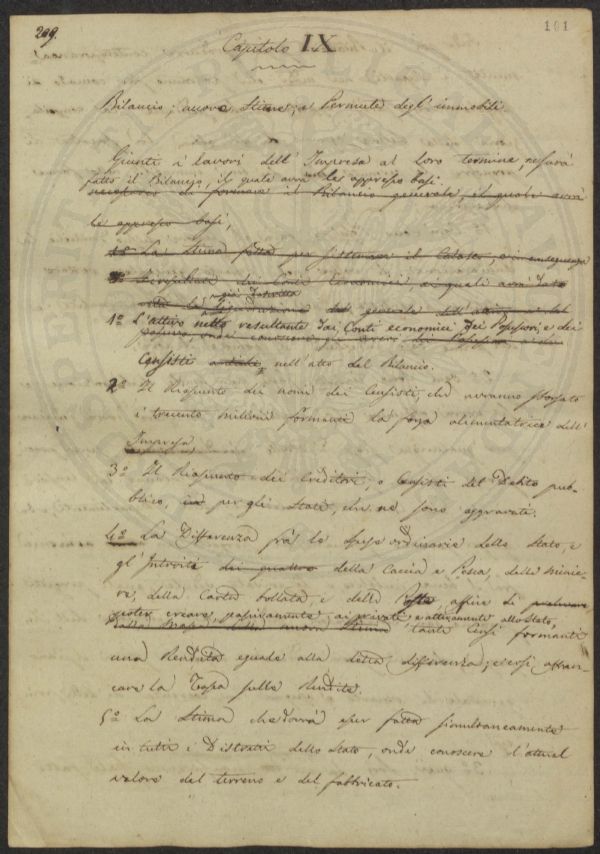 209.
101
Capitolo IX
Bilancio, nuove Stime, e Permute degl' immobili
Giunti i lavori dell' Impresa al loro termine, ne sarà
fatto il Bilancio, il quale avrà le appresso basi.
necessario di formare il Bilancio generale, il quale avrà
le appresso basi,
1º La Stima fatta per sistemare il Catasto, e in conseguenza
dei Conti economici, ai quali avrà
generale dell' attivo
1º L'attivo netto resultante dai Conti economici dei Possessori, e dei
Censisti nell' atto del Bilancio.
2º Il Riassunto dei nomi dei Censisti, che avranno sborsato
i trecento milioni formanti la forza alimentatrice dell'
Impresa,
3º Il Riassunto dei Creditori, o Censisti del Debito pub-
blico, per gli Stati, che ne sono aggravati.
4º La Differenza frà le spese ordinarie dello Stato, e
gl' Introiti dei quattro della Caccia e Pesca, delle minie-
re, della Carta bollata, e della Posta affine di
poter creare, passivamente ai privati e attivamente allo Stato,
tanti Censi formanti
una Rendita eguale alla detta differenza; e così affran-
care la Tassa sulle Rendite.
5º La Stima che dovrà esser fatta simultaneamente
in tutti i Distretti dello Stato, onde conoscere l'attual
valore del terreno e del fabbricato.